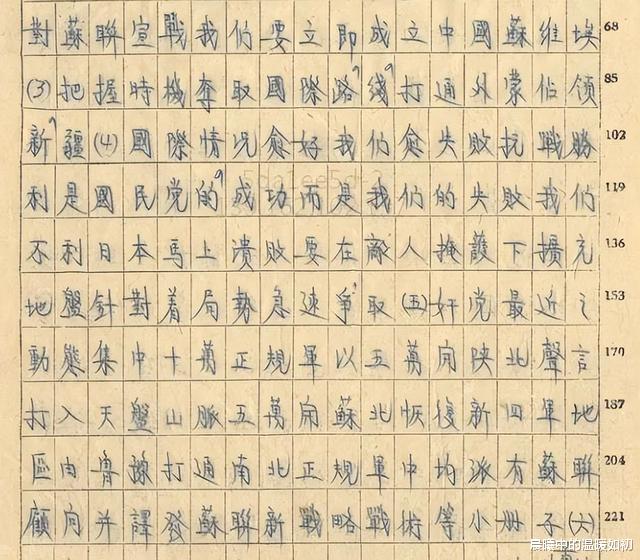 對蘇聯宣戰我们要立即成立中國蘇维埃 68
(3)把握時機奪取國際路綫打通外蒙佔领 85
新疆(4)國際情况愈好我们愈失敗抗戰勝 102
利是國民党的成功而是我们的失敗我们 119
不利日本馬上潰敗要在敵人掩護下擴充 136
地盤針對着局勢急速爭取(五)奸党最近之 153
動態集中十萬正規軍以五萬向陕北聲言 170
打入天盤山脈五萬向蘇北恢復新四軍地 187
區由魯打通南北正規軍中均派有蘇聯 204
顧问并譯發蘇聯新戰略戰術等小册子(六) 221
晨曦中的温暖如初